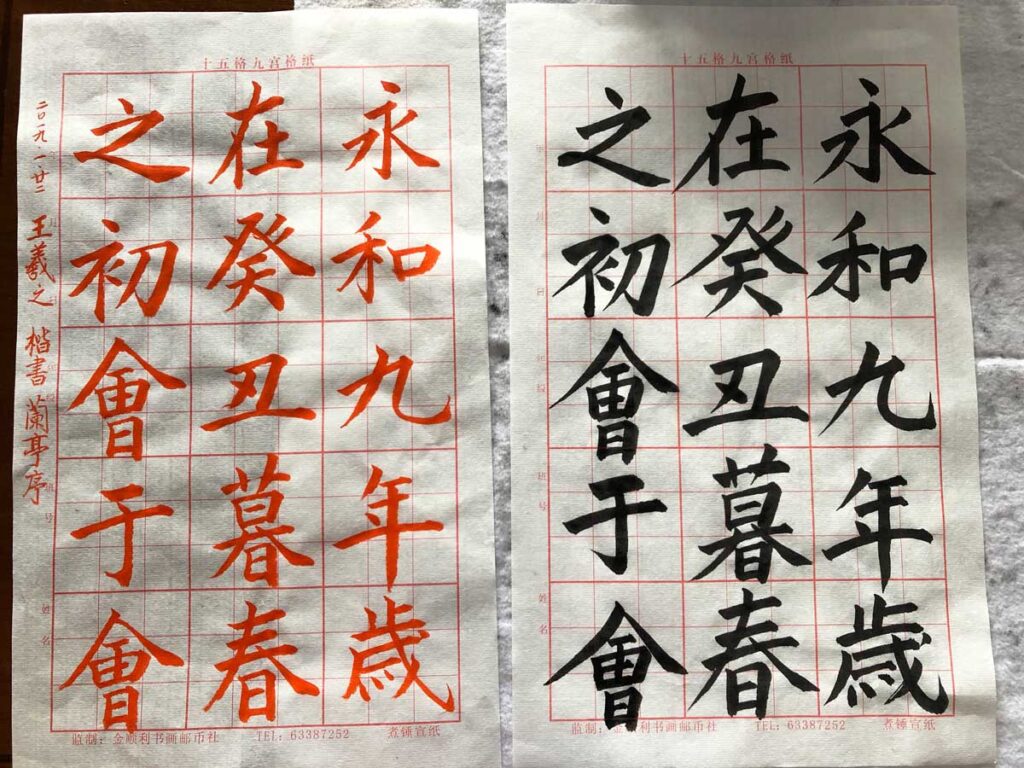 十五格九宫格纸
永和九年歳
在癸丑暮春
之初會于會
二〇一九·一·廿二 王羲之 楷書 蘭亭序
班号
姓名
监制:金顺利书画邮币社 TEL:63387252 煮锤宣纸
十五格九宫格纸
永和九年歳
在癸丑暮春
之初會于會
班号
姓名
监制:金顺利书画邮币社 TEL:63387252 煮锤宣纸